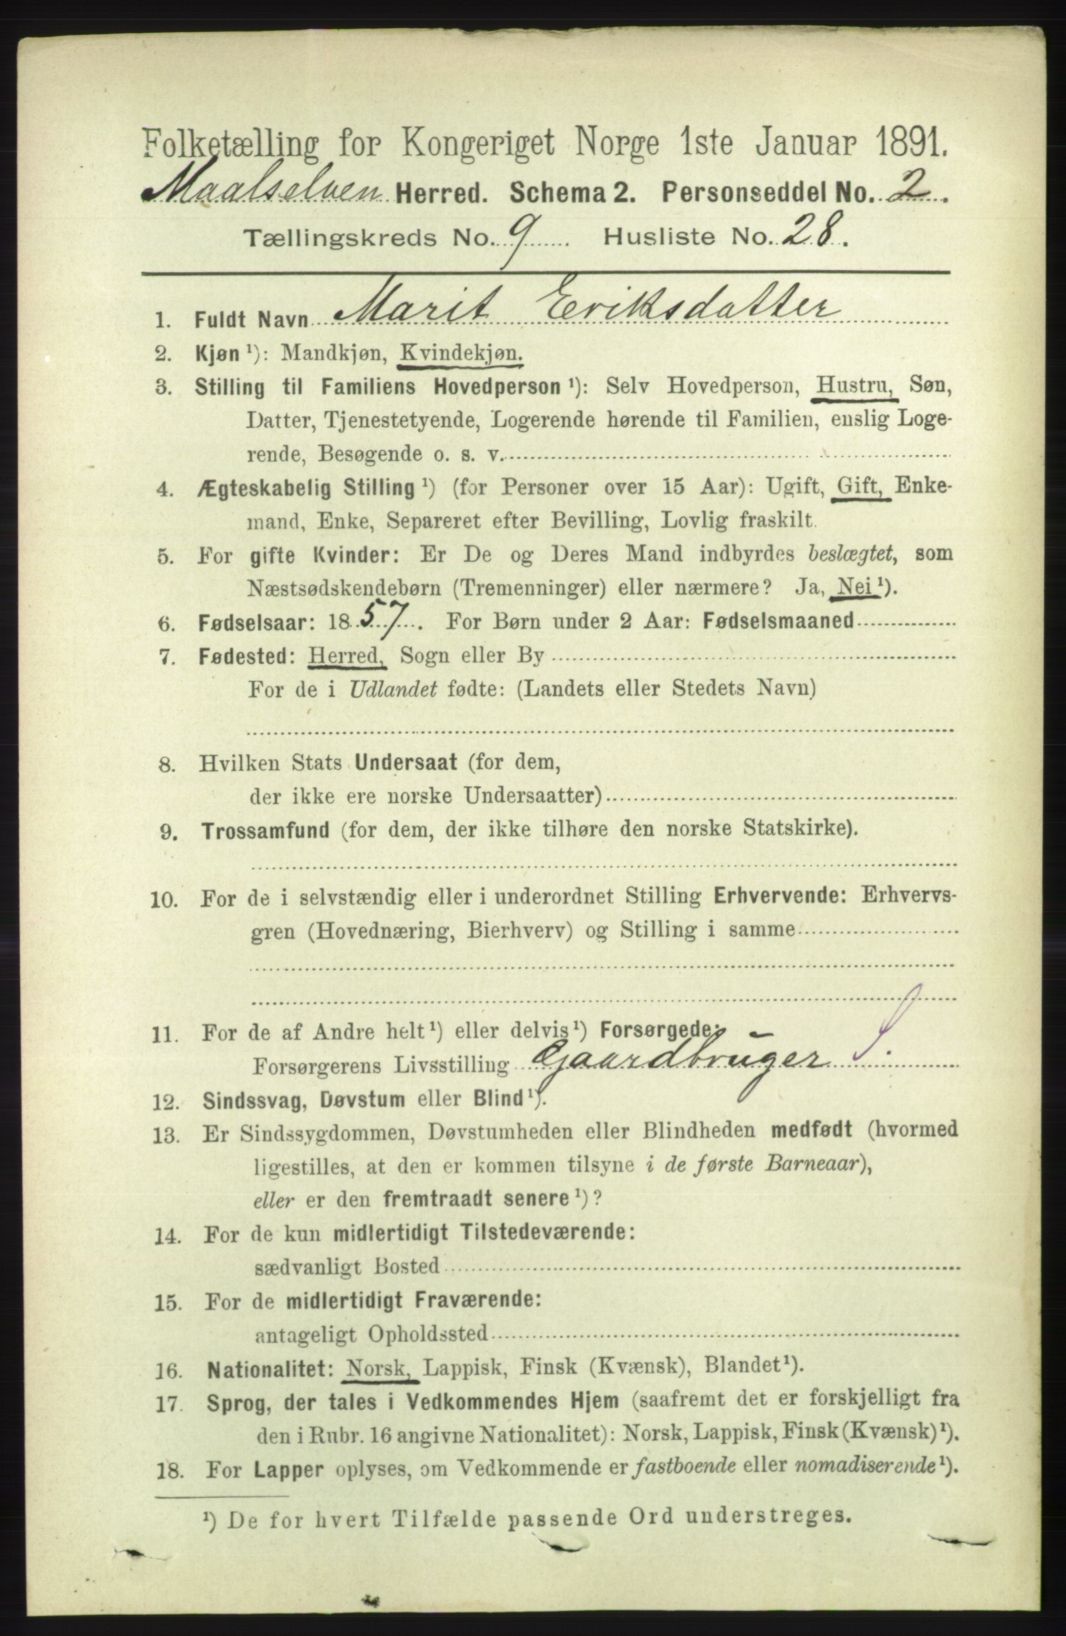 Folketælling for Kongeriget Norge 1ste Januar 1891.
Maalselven Herred. Schema 2. Personseddel No. 2.
Tællingskreds No. 9 Husliste No. 28.
1. Fuldt Navn Marit Eriksdatter
2. Kjøn ¹): Mandkjøn, Kvindekjøn.
3. Stilling til Familiens Hovedperson ¹): Selv Hovedperson, Hustru, Søn,
Datter, Tjenestetyende, Logerende hørende til Familien, enslig Loge-
rende, Besøgende o. s. v.
4. Ægteskabelig Stilling ¹) (for Personer over 15 Aar): Ugift, Gift, Enke-
mand, Enke, Separeret efter Bevilling, Lovlig fraskilt.
5. For gifte Kvinder: Er De og Deres Mand indbyrdes beslægtet, som
Næstsødskendebørn (Tremenninger) eller nærmere? Ja, Nei ¹).
6. Fødselsaar: 1857. For Børn under 2 Aar: Fødselsmaaned
7. Fødested: Herred, Sogn eller By
For de i Udlandet fødte: (Landets eller Stedets Navn)
8. Hvilken Stats Undersaat (for dem,
der ikke ere norske Undersaatter)
9. Trossamfund (for dem, der ikke tilhøre den norske Statskirke).
10. For de i selvstændig eller i underordnet Stilling Erhvervende: Erhvervs-
gren (Hovednæring, Bierhverv) og Stilling i samme
11. For de af Andre helt ¹) eller delvis ¹) Forsørgede:
Forsørgerens Livsstilling Gaardbruger S.
12. Sindssvag, Døvstum eller Blind ¹).
13. Er Sindssygdommen, Døvstumheden eller Blindheden medfødt (hvormed
ligestilles, at den er kommen tilsyne i de første Barneaar),
eller er den fremtraadt senere ¹)?
14. For de kun midlertidigt Tilstedeværende:
sædvanligt Bosted
15. For de midlertidigt Fraværende:
antageligt Opholdssted
16. Nationalitet: Norsk, Lappisk, Finsk (Kvænsk), Blandet ¹).
17. Sprog, der tales i Vedkommendes Hjem (saafremt det er forskjelligt fra
den i Rubr. 16 angivne Nationalitet): Norsk, Lappisk, Finsk (Kvænsk) ¹).
18. For Lapper oplyses, om Vedkommende er fastboende eller nomadiserende ¹).
¹) De for hvert Tilfælde passende Ord understreges.